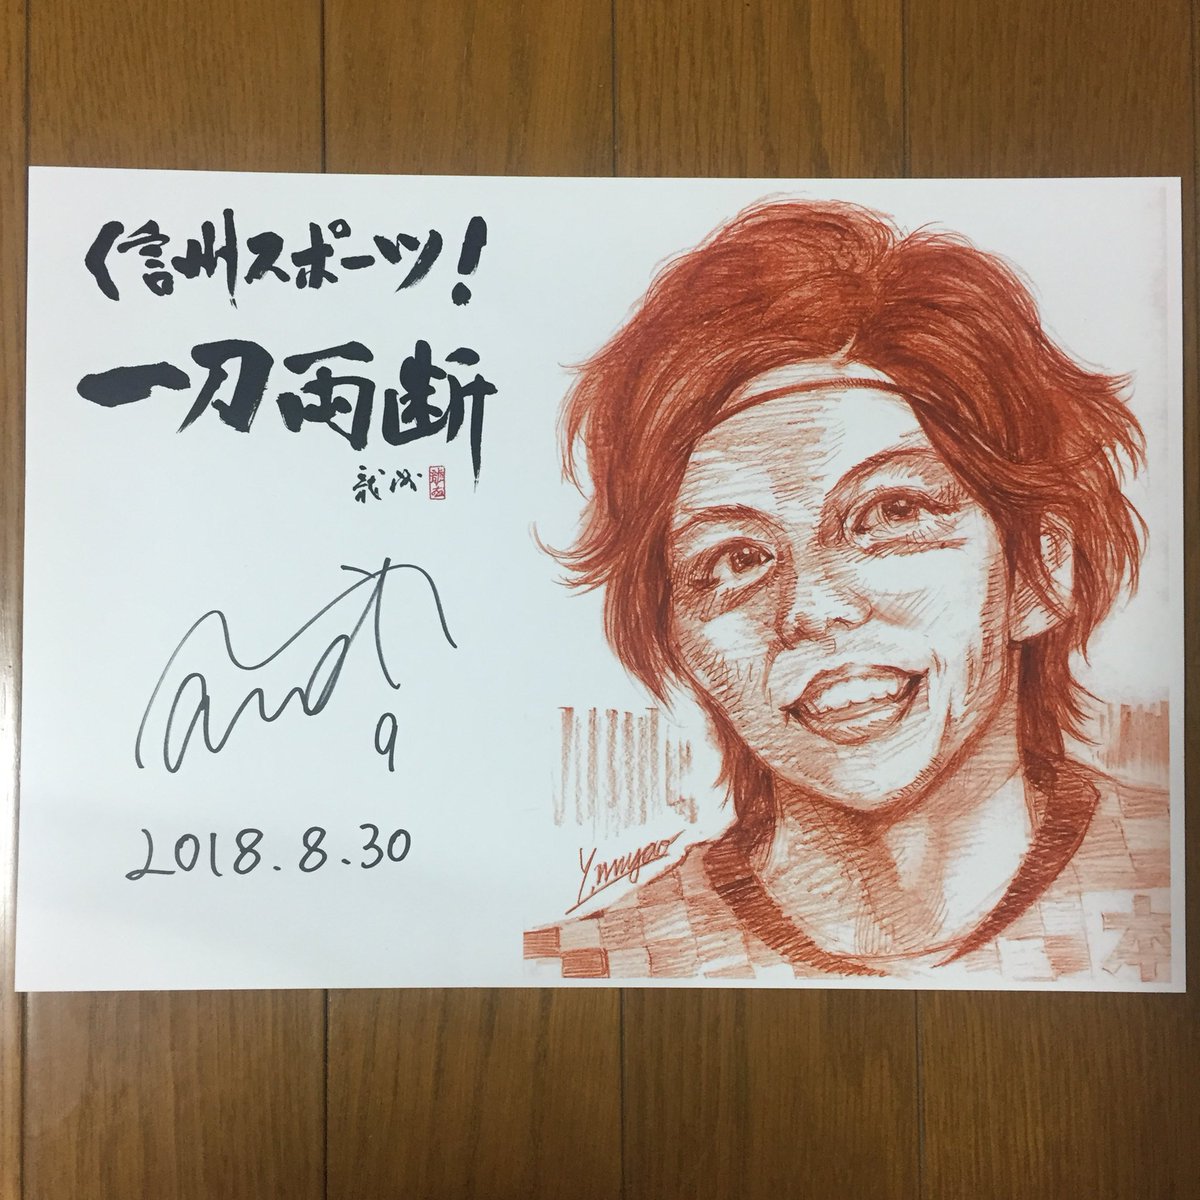 信州スポーツ!
一刀両断
9
2018.8.30
Y.nnyao
本